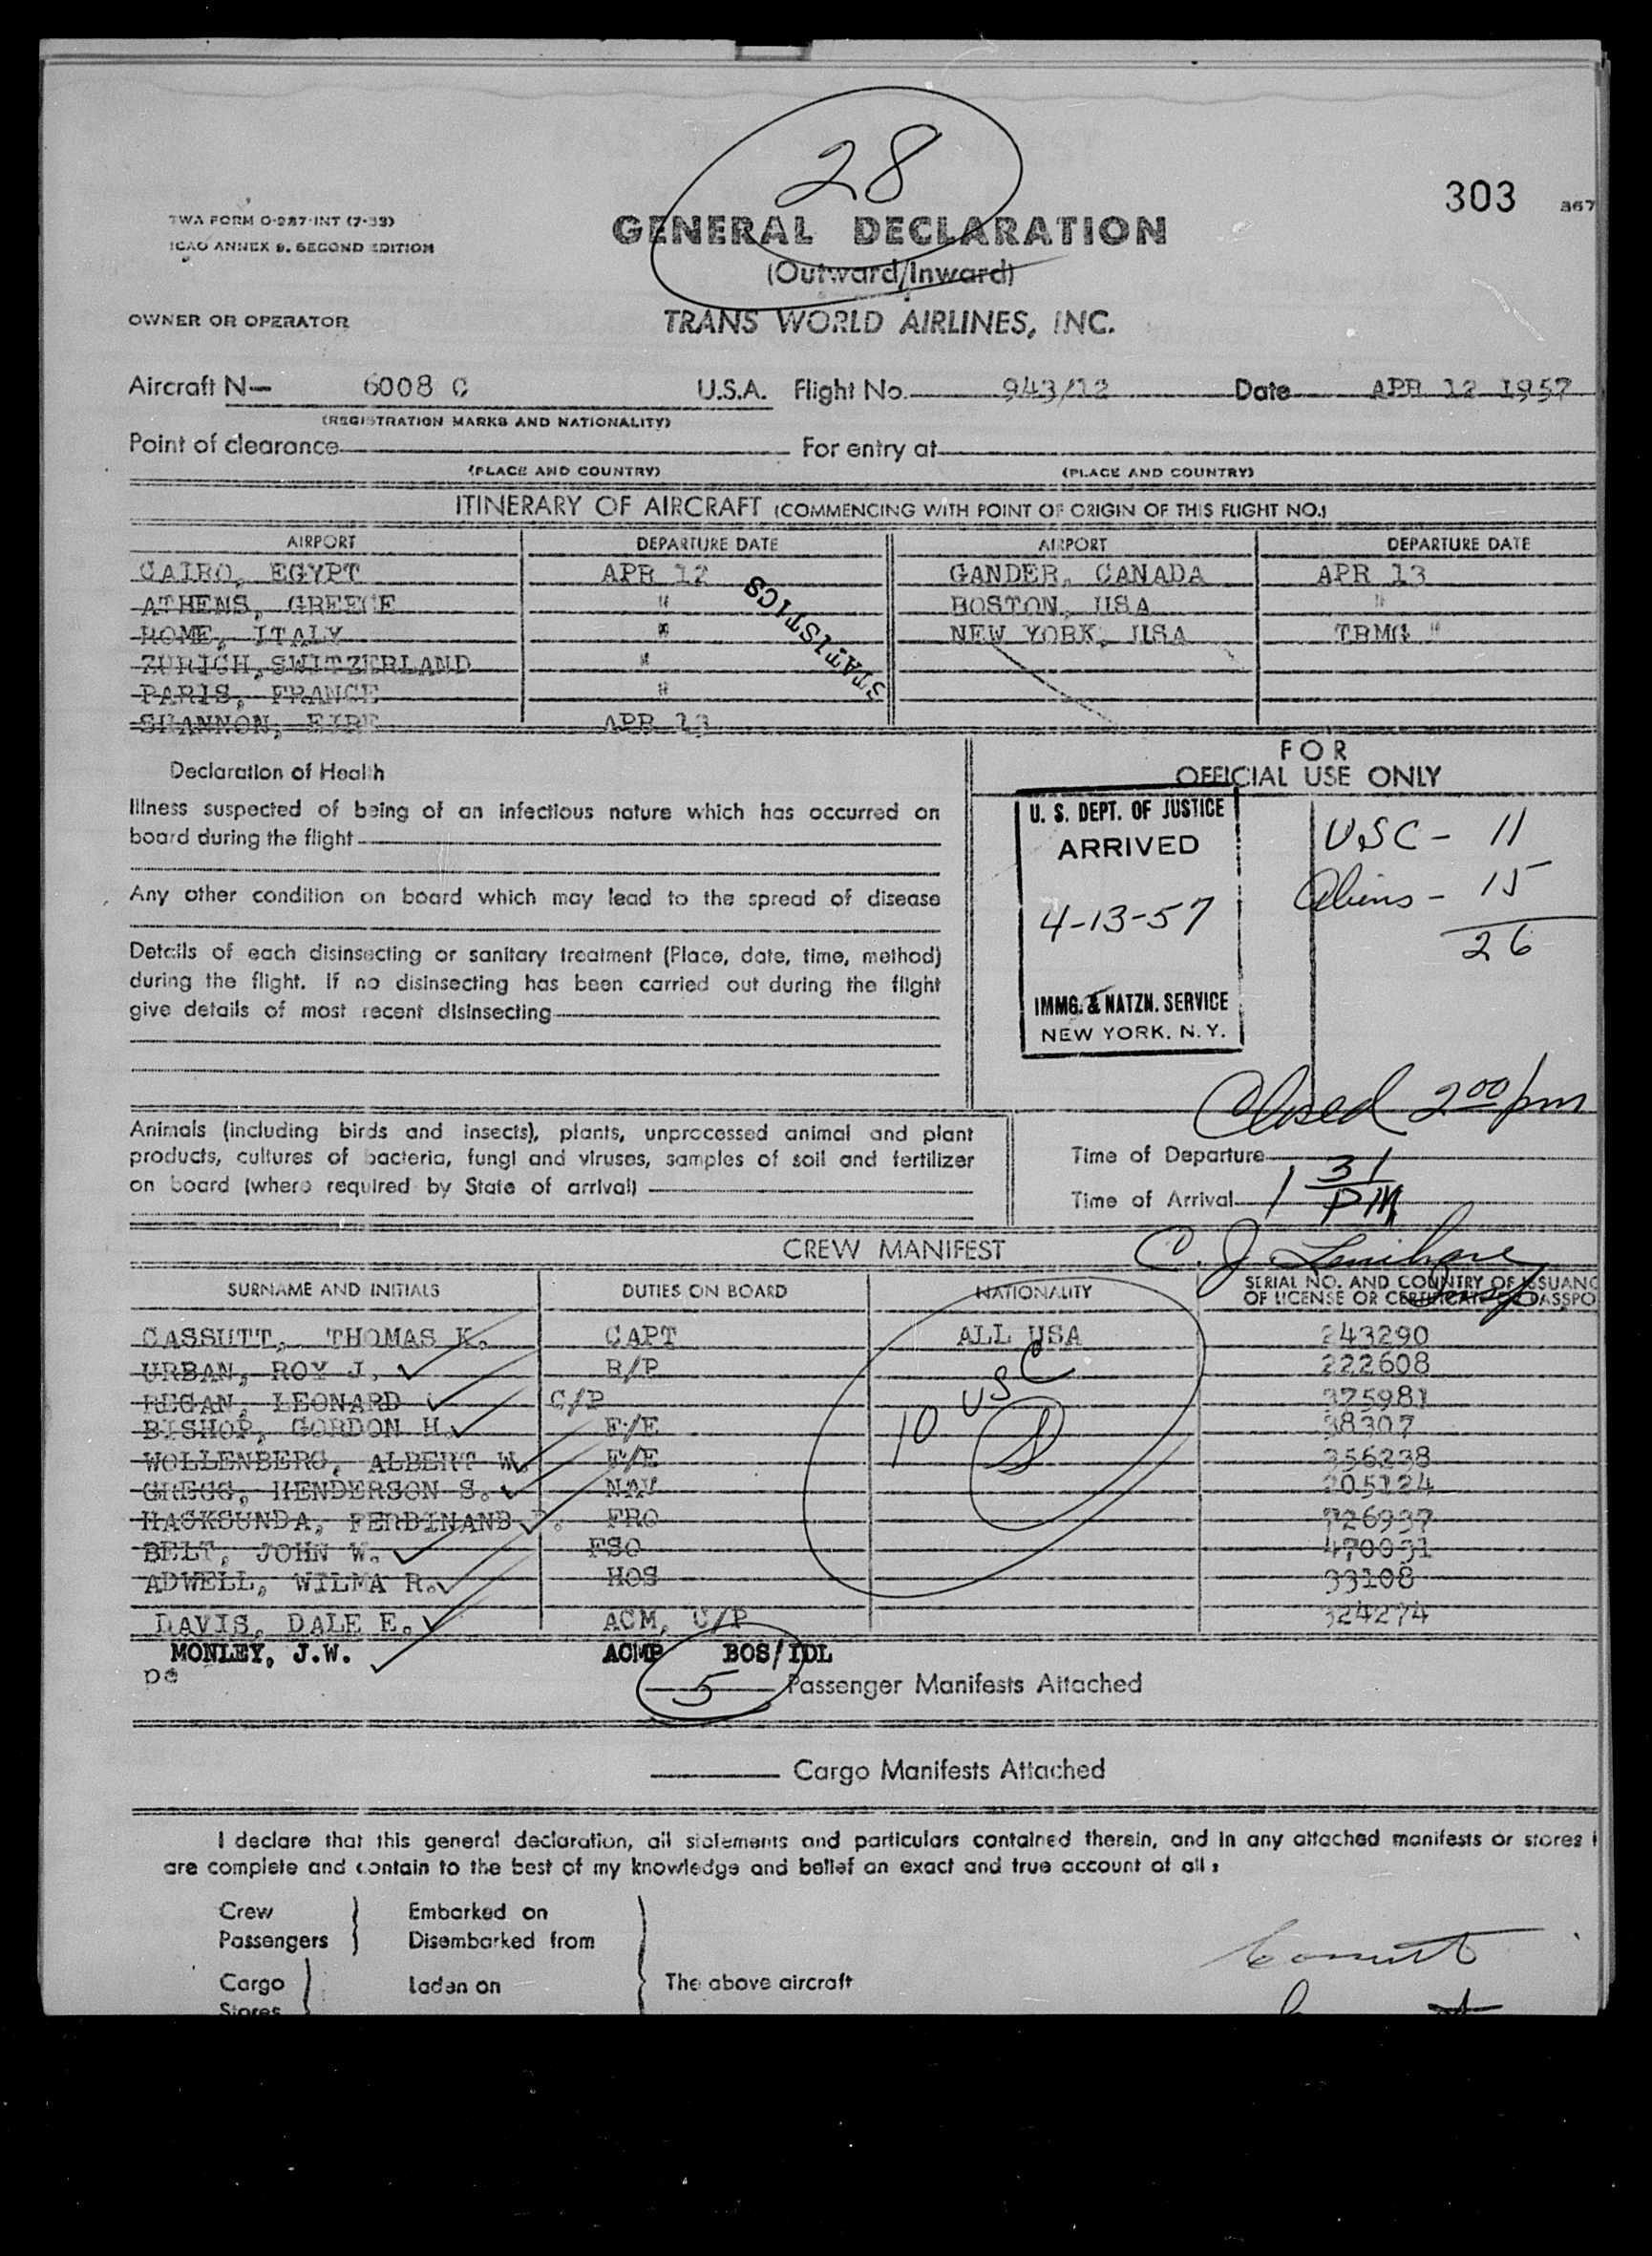 28
303
367
TWA FORM O-287-INT (7-53)
ICAO ANNEX 9. SECOND EDITION
GENERAL DECLARATION
(Outward/Inward)
OWNER OR OPERATOR
TRANS WORLD AIRLINES, INC.
Aircraft N- 6008 C U.S.A. Flight No. 943/12 Date APR 12 1957
(REGISTRATION MARKS AND NATIONALITY)
Point of clearance For entry at
(PLACE AND COUNTRY) (PLACE AND COUNTRY)
ITINERARY OF AIRCRAFT (COMMENCING WITH POINT OF ORIGIN OF THIS FLIGHT NO.)
AIRPORT DEPARTURE DATE AIRPORT DEPARTURE DATE
CAIRO, EGYPT APR 12 GANDER, CANADA APR 13
ATHENS, GREECE " BOSTON, USA "
ROME, ITALY " NEW YORK, USA TRMG "
ZURICH, SWITZERLAND "
PARIS, FRANCE "
SHANNON, EIRE APR 13
STATISTICS
Declaration of Health
Illness suspected of being of an infectious nature which has occurred on
board during the flight
Any other condition on board which may lead to the spread of disease
Details of each disinsecting or sanitary treatment (Place, date, time, method)
during the flight. If no disinsecting has been carried out during the flight
give details of most recent disinsecting
FOR
OFFICIAL USE ONLY
U. S. DEPT. OF JUSTICE
ARRIVED
4-13-57
IMMG. & NATZN. SERVICE
NEW YORK, N.Y.
USC - 11
Aliens - 15
26
Closed 2 00 pm
Animals (including birds and insects), plants, unprocessed animal and plant
products, cultures of bacteria, fungi and viruses, samples of soil and fertilizer
on board (where required by State of arrival)
Time of Departure
Time of Arrival 1 31 PM
CREW MANIFEST
C. J.
SURNAME AND INITIALS DUTIES ON BOARD NATIONALITY SERIAL NO. AND COUNTRY OF ISSUANC
OF LICENSE OR CERTIFICATE OR PASSPO
CASSUTT, THOMAS K. CAPT ALL USA 243290
URBAN, ROY J. R/P 222608
REGAN, LEONARD C/P 375981
BISHOP, GORDON H. F/E 38307
WOLLENBERG, ALBERT W. F/E 356238
GREGG, HENDERSON S. NAV 205124
HACKSUNDA, FERDINAND P. FRO 726937
BELT, JOHN W. FSO 470031
ADWELL, WILMA R. HOS 33108
DAVIS, DALE E. ACM, C/P 324274
10 USC
MONLEY, J.W. ACMP BOS/IDL
pe
5 Passenger Manifests Attached
Cargo Manifests Attached
I declare that this general declaration, all statements and particulars contained therein, and in any attached manifests or stores l
are complete and contain to the best of my knowledge and belief an exact and true account of all:
Crew Embarked on
Passengers Disembarked from
Cargo Laden on The above aircraft
Stores